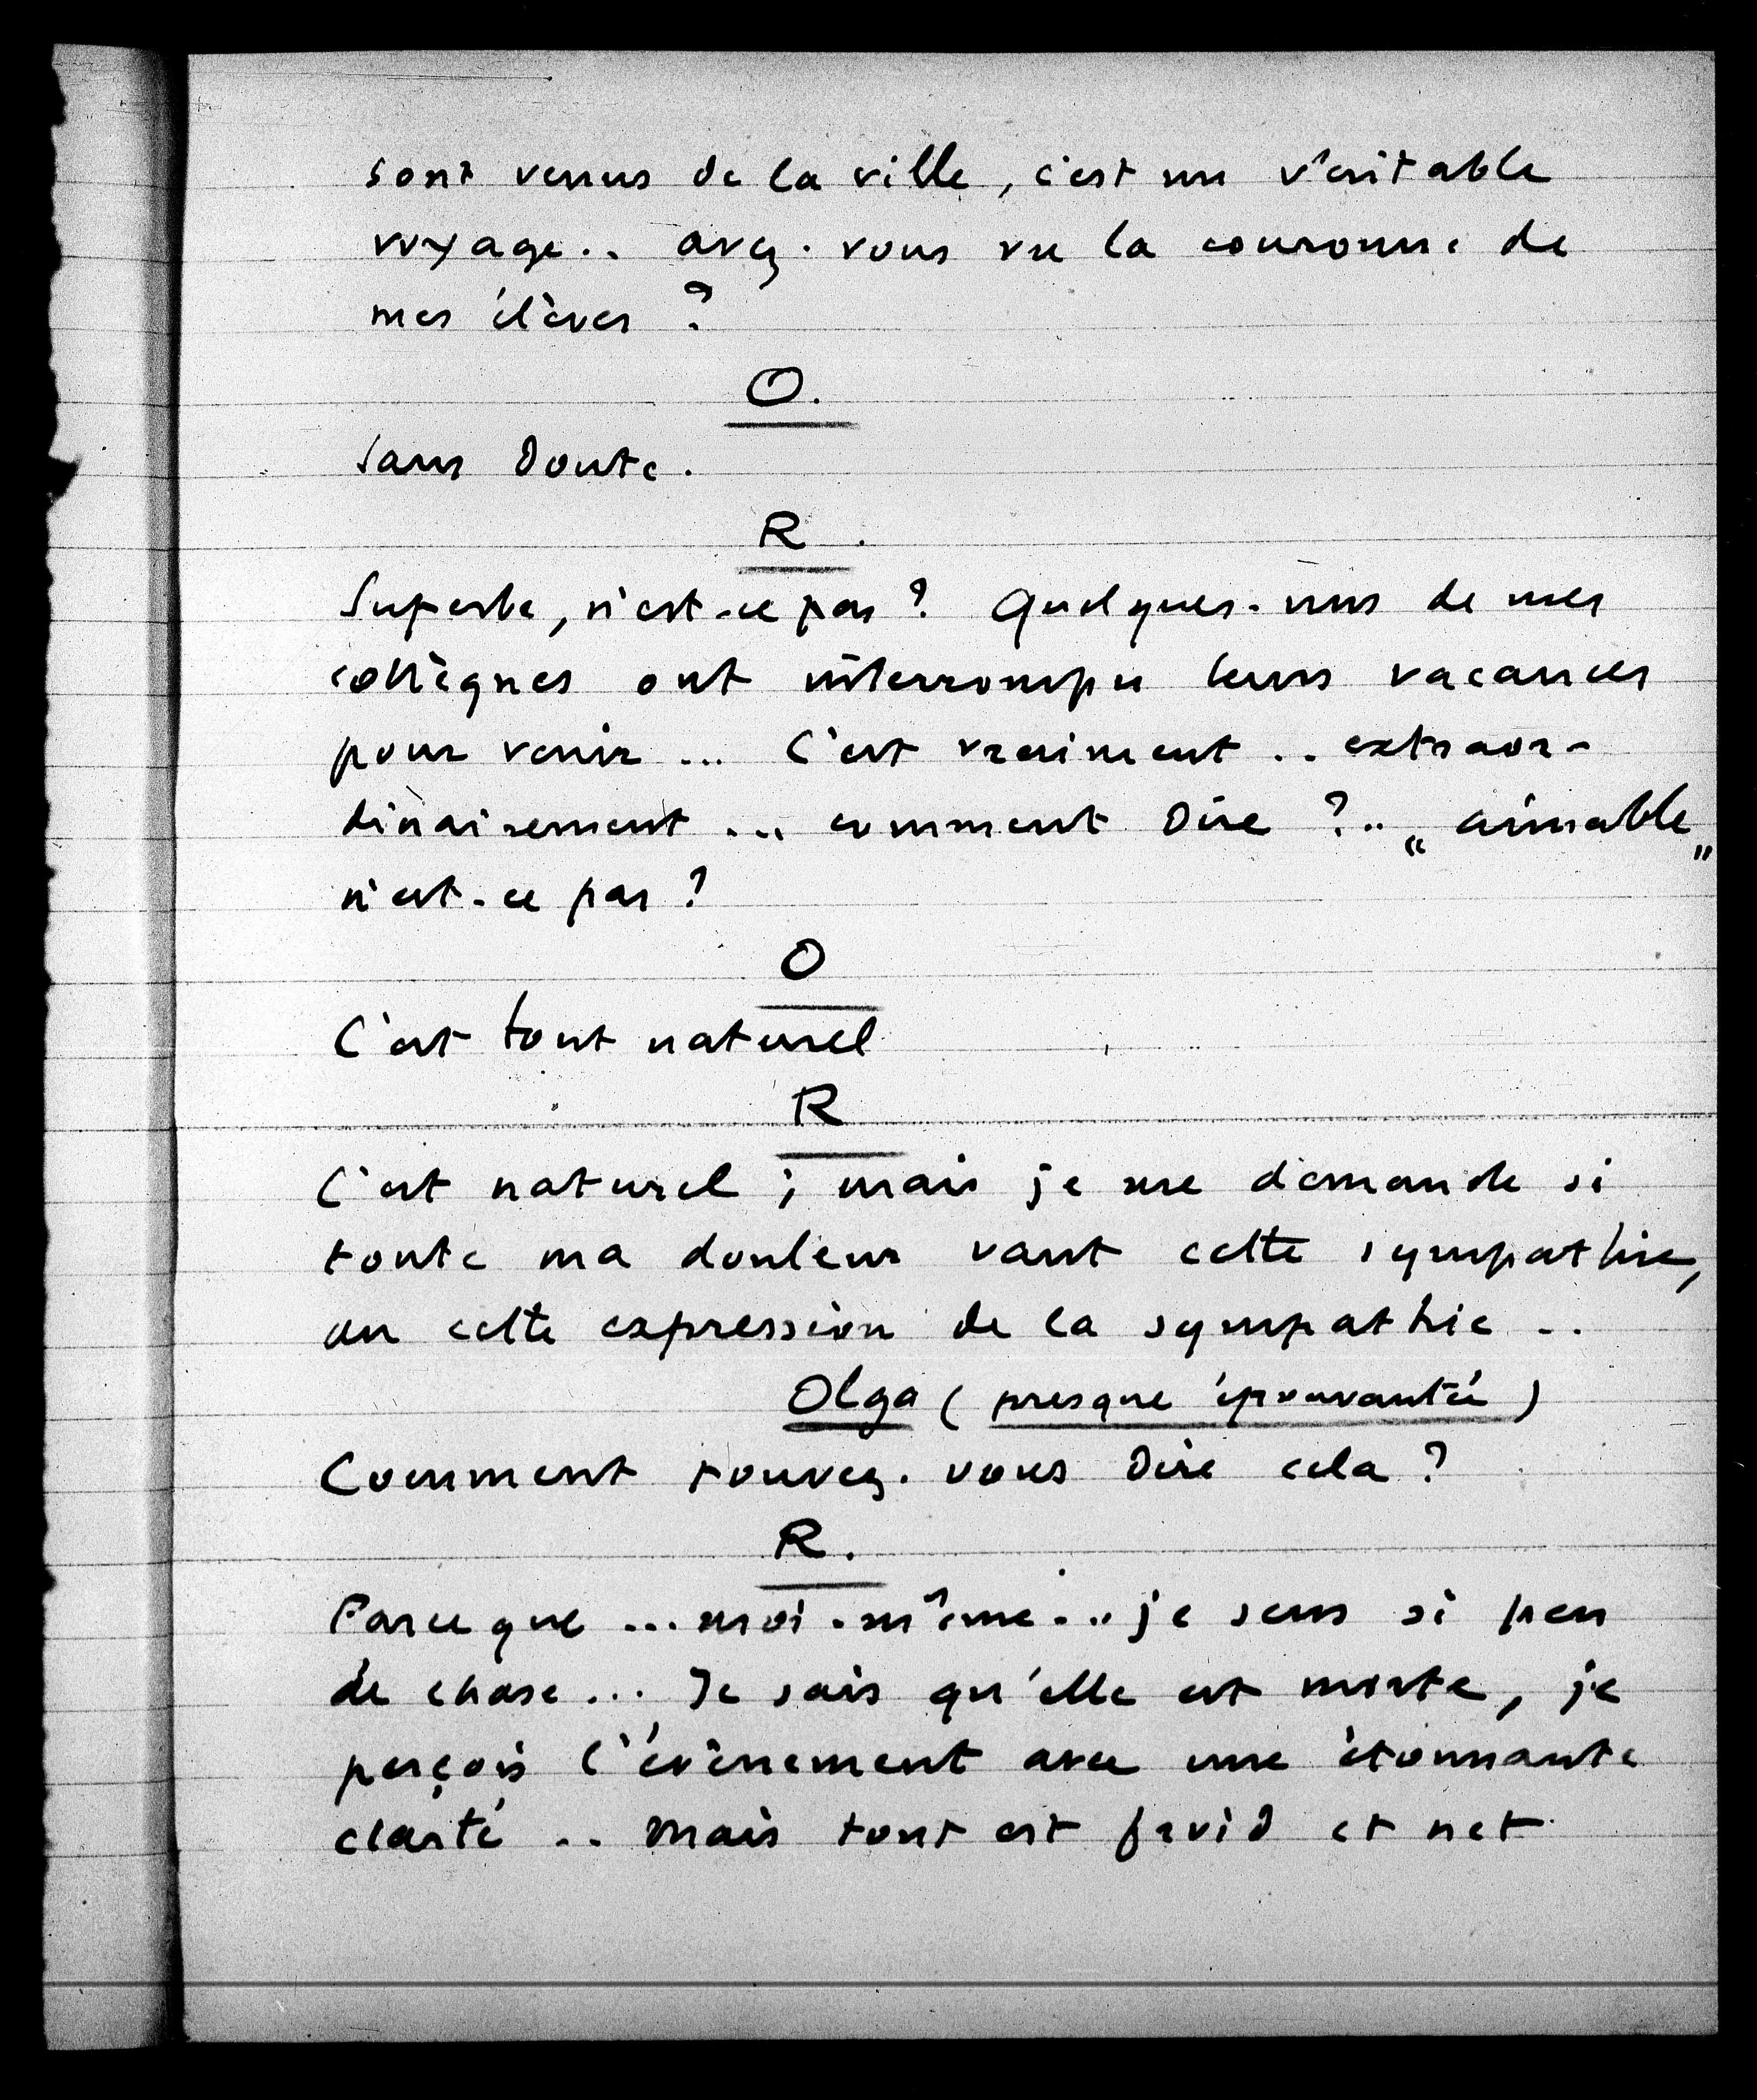 sont venus de la ville, c'est un véritable
voyage.. avez-vous vu la couronne de
mes élèves ?
O.
Sans doute.
R.
Superbe, n'est-ce pas ? Quelques-uns de mes
collègues ont interrompu leurs vacances
pour venir ... C'est vraiment .. extraor-
dinairement ... comment dire ?.. „ aimable „
n'est-ce pas ?
O
C'est tout naturel
R
C'est naturel ; mais je me demande si
toute ma douleur vaut cette sympathie,
ou cette expression de la sympathie ..
Olga ( presque épouvantée )
Comment pouvez-vous dire cela ?
R.
Parce que ... moi-même... je sens si peu
de chose ... Je sais qu'elle est morte, je
perçois l'évènement avec une étonnante
clarté .. mais tout est froid et net